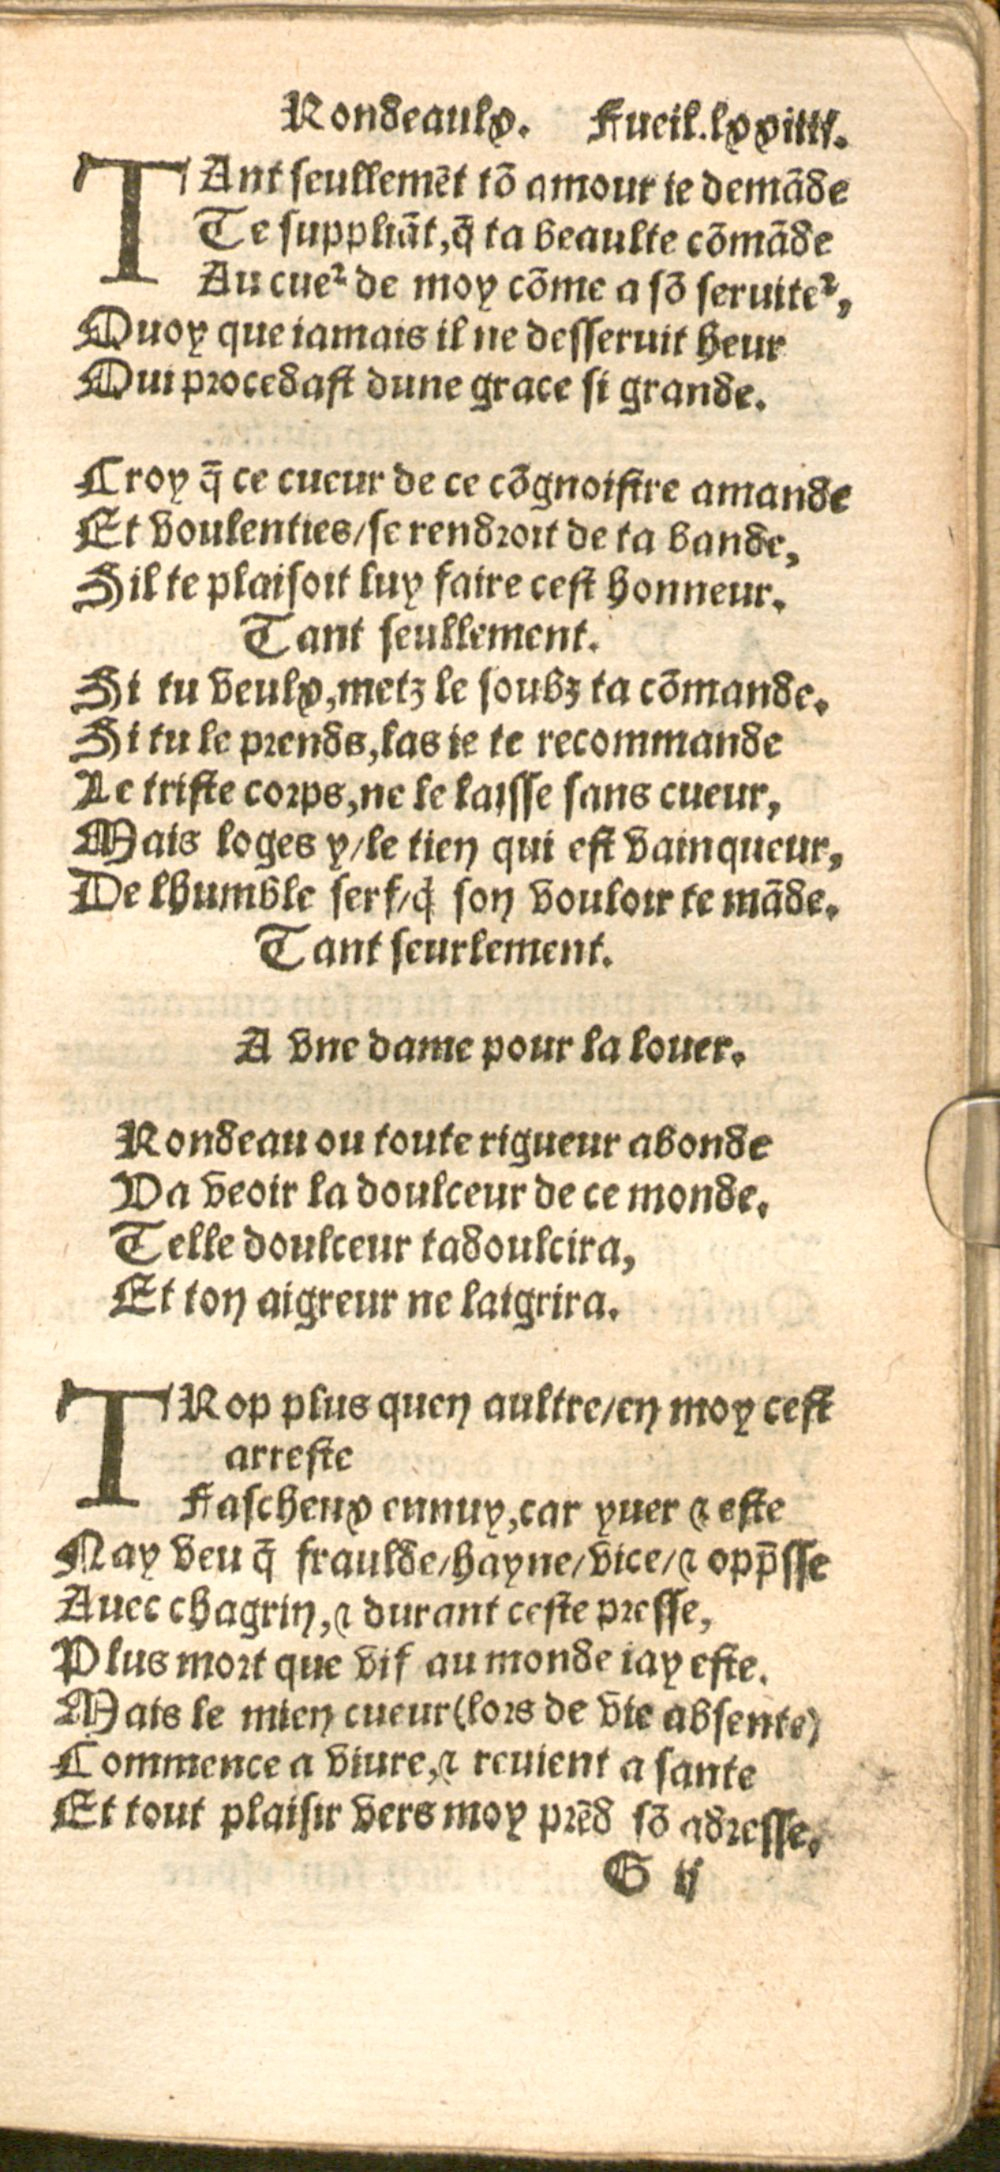 Rondeaulx. Fueil.lxxiiii.
TAnt seullemēt tō amour ie demāde
Te suppliāt,q̄ ta beaulte cōmāde
Au cueꝛ de moy cōme a sō seruiteꝛ,
Quoy que iamais il ne desseruit heur
Qui procedast dune grace si grande.
Croy q̄ ce cueur de ce cōgnoistre amande
Et voulenties/se rendroit de ta bande,
Sil te plaisoit luy faire cest honneur.
Tant seullement.
Si tu veulx,metz le soubz ta cōmande.
Si tu le prends,las ie te recommande
Le triste corps,ne le laisse sans cueur,
Mais loges y/le tien qui est vainqueur,
De lhumble serf/q̇ son vouloir te māde.
Tant seurlement.
A vne dame pour la louer.
Rondeau ou toute rigueur abonde
Va veoir la doulceur de ce monde.
Telle doulceur tadoulcira,
Et ton aigreur ne laigrira.
TRop plus quen aultre/en moy cest
arreste
Fascheux ennuy,car yuer ⁊ este
Nay veu q̄ fraulde/hayne/vice/⁊ opp̄sse
Auec chagrin,⁊ durant ceste presse,
Plus mort que vif au monde iay este.
Mais le mien cueur(lors de vie absente)
Commence a viure,⁊ reuient a sante
Et tout plaisir vers moy prēd sō adresse.
G ij